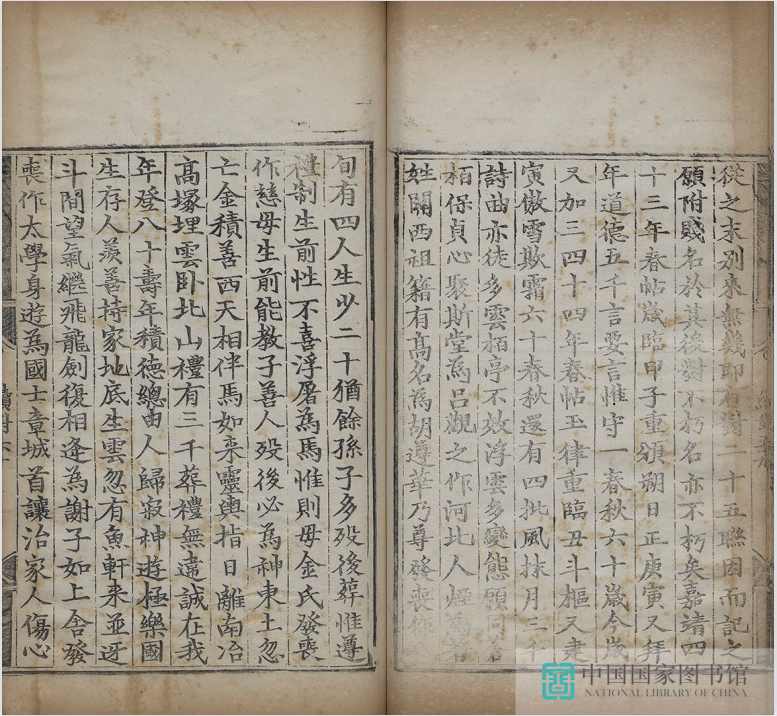 從之末別來無幾即有對二十五聯因而記之
願附賤名於其後對不朽名亦不朽矣嘉靖四
十三年春帖歲臨甲子重頒朔日正庚寅又拜
年道德五千言要言惟守一春秋六十歲今歲
又加三四十四年春帖玉律重臨丑斗樞又建
寅傲雪欺霜六十春秋還有四批風抹月三千
詩曲亦徒多雲栢亭不效浮雲多變態願同老
栢保貞心聚斯堂為吕觀之作河北人煙為著
姓關西祖籍有高名為胡遵華乃尊發喪作
旬有四人生少二十猶餘孫子多殁後葬惟遵
禮制生前性不喜浮屠為馬惟則母金氏發喪
作慈母生前能教子善人殁後必為神東土忽
亡金積善西天相伴馬如來靈輿指日離南冶
高塚埋雲卧北山禮有三千葬禮無違誠在我
年登八十壽年積德總由人歸寂神遊極樂國
生存人羨善持家地底生雲忽有魚軒来並迓
斗間望氣繼飛龍劍復相逢為謝子如上舍發
喪作太學身遊為國士章城首讓治家人傷心
中国国家图书馆
NATIONAL LIBRARY OF CHINA